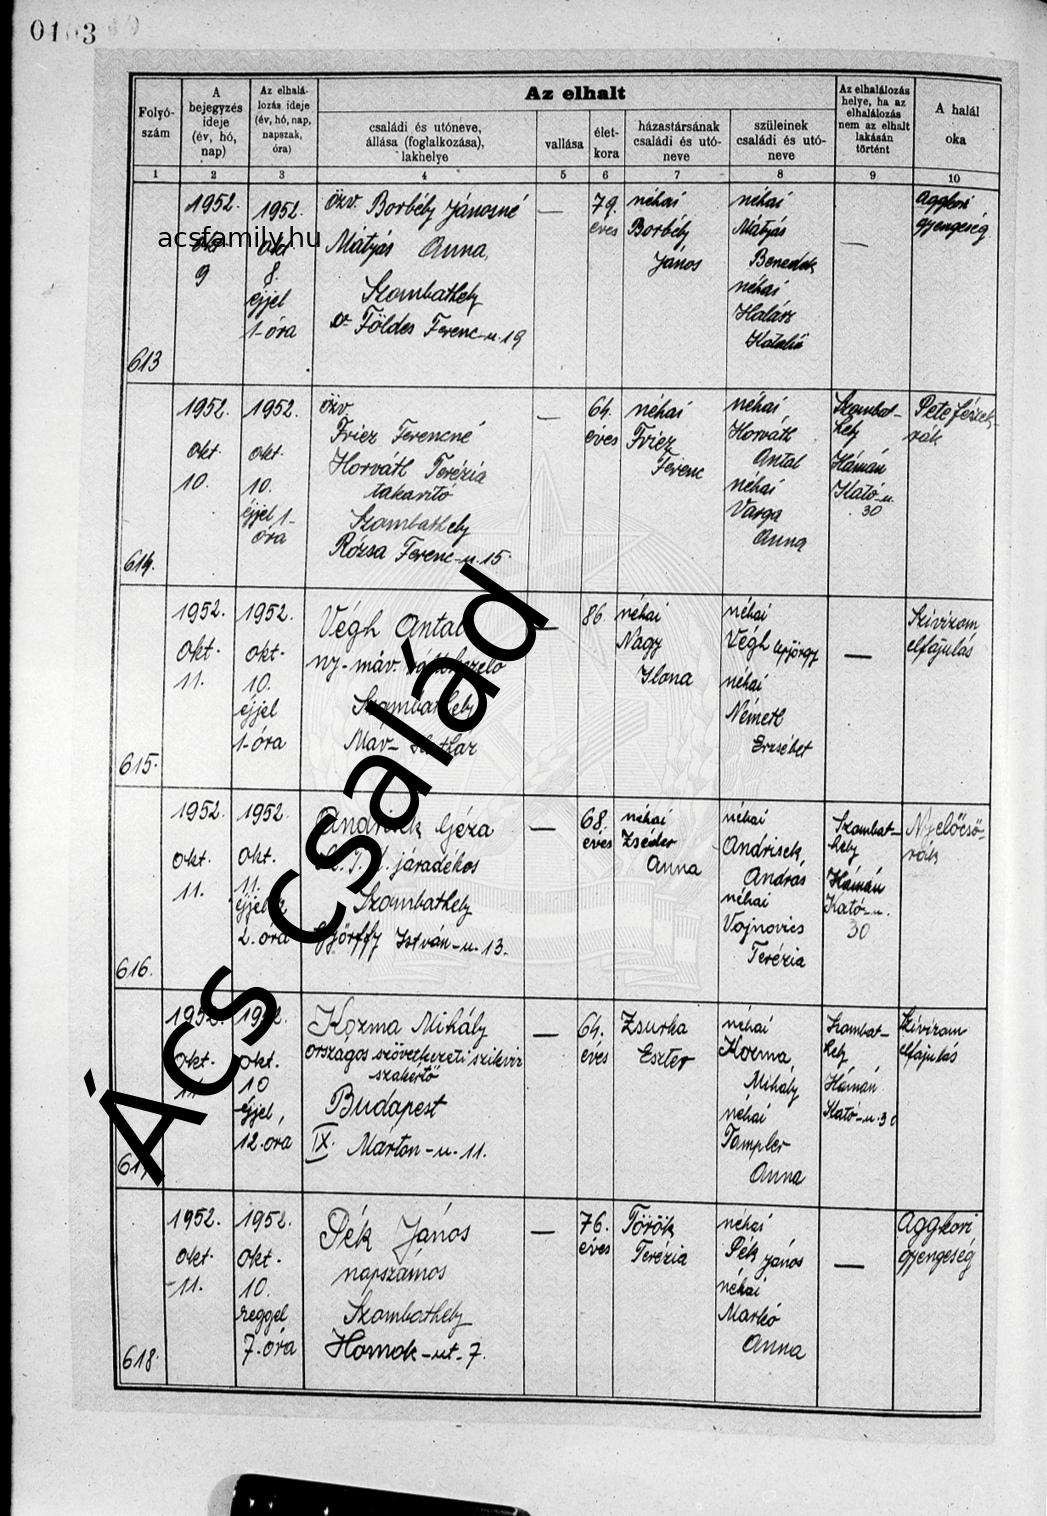 0103
Folyó-
szám
A
bejegyzés
ideje
(év, hó,
nap)
Az elhalá-
lozás ideje
(év, hó, nap,
napszak,
óra)
Az elhalt
családi és utóneve,
állása (foglalkozása),
lakhelye
vallása
élet-
kora
házastársának
családi és utó-
neve
szüleinek
családi és utó-
neve
Az elhalálozás
helye, ha az
elhalálozás
nem az elhalt
lakásán
történt
A halál
oka
1 2 3 4 5 6 7 8 9 10
613
1952.
okt
9
1952.
okt
8.
éjjel
1-óra
özv. Borbély Jánosné
Mátyás Anna
Szombathely
Dr. Földes Ferenc-u. 19
—
79.
éves
néhai
Borbély
János
néhai
Mátyás
Benedek
néhai
Halász
Katalin
—
Aggkori
gyengeség
614.
1952.
okt.
10.
1952.
okt.
10.
éjjel 1-
óra
özv.
Friez Ferencné
Horváth Terézia
takarító
Szombathely
Rózsa Ferenc-u. 15.
—
64.
éves
néhai
Friez
Ferenc
néhai
Horváth
Antal
néhai
Varga
Anna
Szombat-
hely
Hámán
Kató-u.
30
Petefészek-
rák
615.
1952.
okt.
11.
1952.
okt.
10.
éjjel
1-óra
Végh Antal
ny. máv.
Szombathely
Máv-
—
86.
néhai
Nagy
Ilona
néhai
Végh György
néhai
Németh
Erzsébet
—
Szivizom
elfajulás
616.
1952.
okt.
11.
1952.
okt.
11.
éjjel
2.óra
Andrisek Géza
járadékos
Szombathely
Györffy István-u. 13.
—
68.
éves
néhai
Zséder
Anna
néhai
Andrisek
András
néhai
Vojnovics
Terézia
Szombat-
hely
Hámán
Kató-u.
30
Nyelőcső-
rák
617.
1952.
okt.
11.
1952.
okt.
10
éjjel,
12.óra
Kozma Mihály
országos szövetkezeti szikviz
szakértő
Budapest
IX. Márton-u. 11.
—
64.
éves
Zsurka
Eszter
néhai
Kozma
Mihály
néhai
Templer
Anna
Szombat-
hely
Hámán
Kató-u. 30
Szivizom
elfajulás
618.
1952.
okt.
11.
1952.
okt.
10.
reggel
7.óra
Pék János
napszámos
Szombathely
Homok-ut. 7.
—
76.
éves
Török
Terézia
néhai
Pék János
néhai
Markó
Anna
—
Aggkori
gyengeség
acsfamily.hu
Ács család